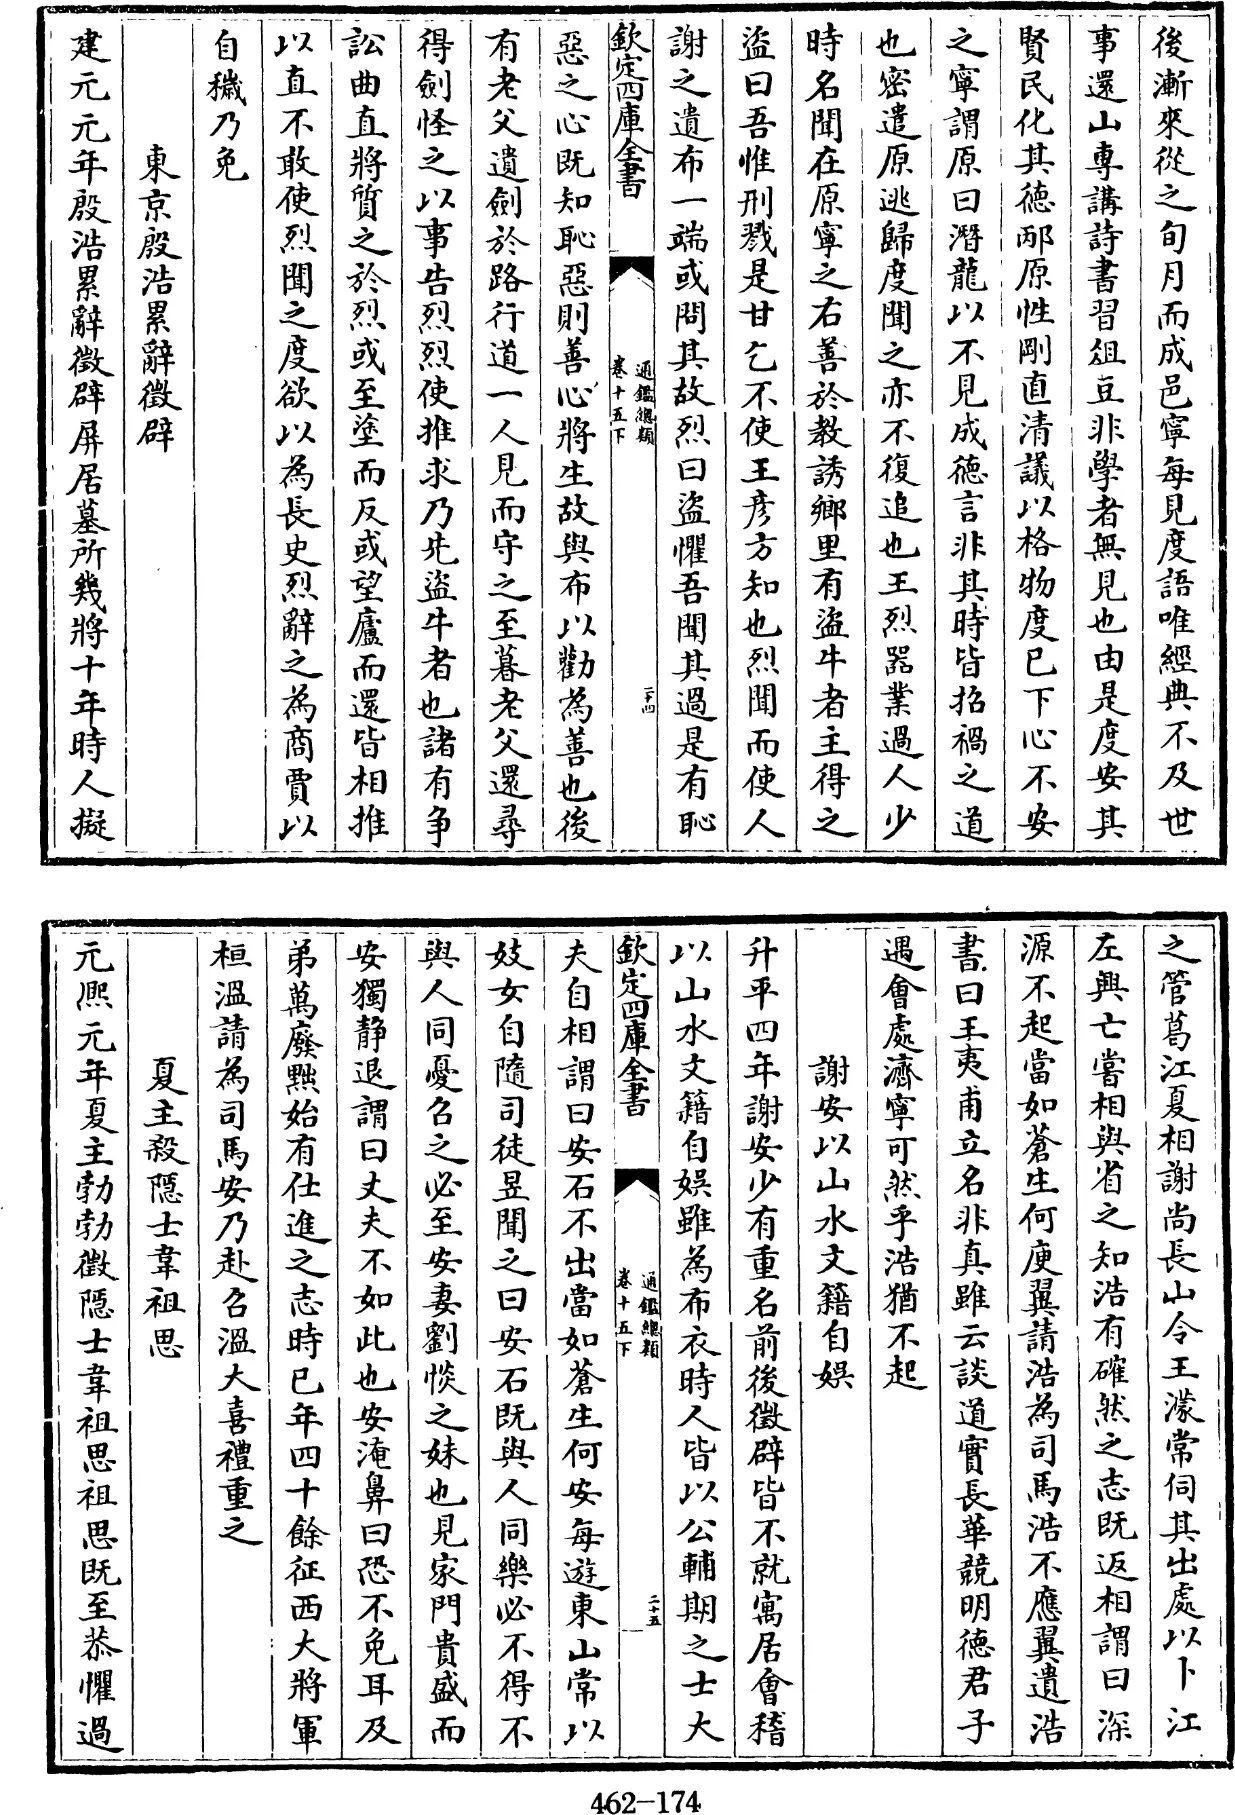 後漸來從之旬月而成邑寧每見度語唯經典不及世
事還山專講詩書習俎豆非學者無見也由是度安其
賢民化其徳邴原性剛直清議以格物度已下心不安
之寧謂原曰潛龍以不見成徳言非其時皆招禍之道
也密遣原逃歸度聞之亦不復追也王烈器業過人少
時名聞在原寧之右善於教誘鄉里有盜牛者主得之
盜曰吾惟刑戮是甘乞不使王彦方知也烈聞而使人
謝之遺布一端或問其故烈曰盜懼吾聞其過是有恥
欽定四庫全書
通鑑總類
卷十五下
二十四
惡之心既知恥惡則善心將生故與布以勸為善也後
有老父遺劍於路行道一人見而守之至暮老父還尋
得劍怪之以事告烈烈使推求乃先盜牛者也諸有争
訟曲直將質之於烈或至塗而反或望廬而還皆相推
以直不敢使烈聞之度欲以為長史烈辭之為商賈以
自穢乃免
東京殷浩累辭徵辟
建元元年殷浩累辭徵辟屏居墓所幾將十年時人擬
之管葛江夏相謝尚長山令王濛常伺其出處以卜江
左興亡嘗相與省之知浩有確然之志既返相謂曰深
源不起當如蒼生何庾翼請浩為司馬浩不應翼遺浩
書曰王夷甫立名非真雖云談道實長華競明徳君子
遇會處濟寧可然乎浩猶不起
謝安以山水文籍自娱
升平四年謝安少有重名前後徵辟皆不就寓居會稽
以山水文籍自娱雖為布衣時人皆以公輔期之士大
欽定四庫全書
通鑑總類
卷十五下
二十五
夫自相謂曰安石不出當如蒼生何安每遊東山常以
妓女自隨司徒昱聞之曰安石既與人同樂必不得不
與人同憂召之必至安妻劉惔之妹也見家門貴盛而
安獨静退謂曰丈夫不如此也安淹鼻曰恐不免耳及
弟萬廢黜始有仕進之志時已年四十餘征西大將軍
桓溫請為司馬安乃赴召溫大喜禮重之
夏主殺隠士韋祖思
元熈元年夏主勃勃徵隠士韋祖思祖思既至恭懼過
462-174